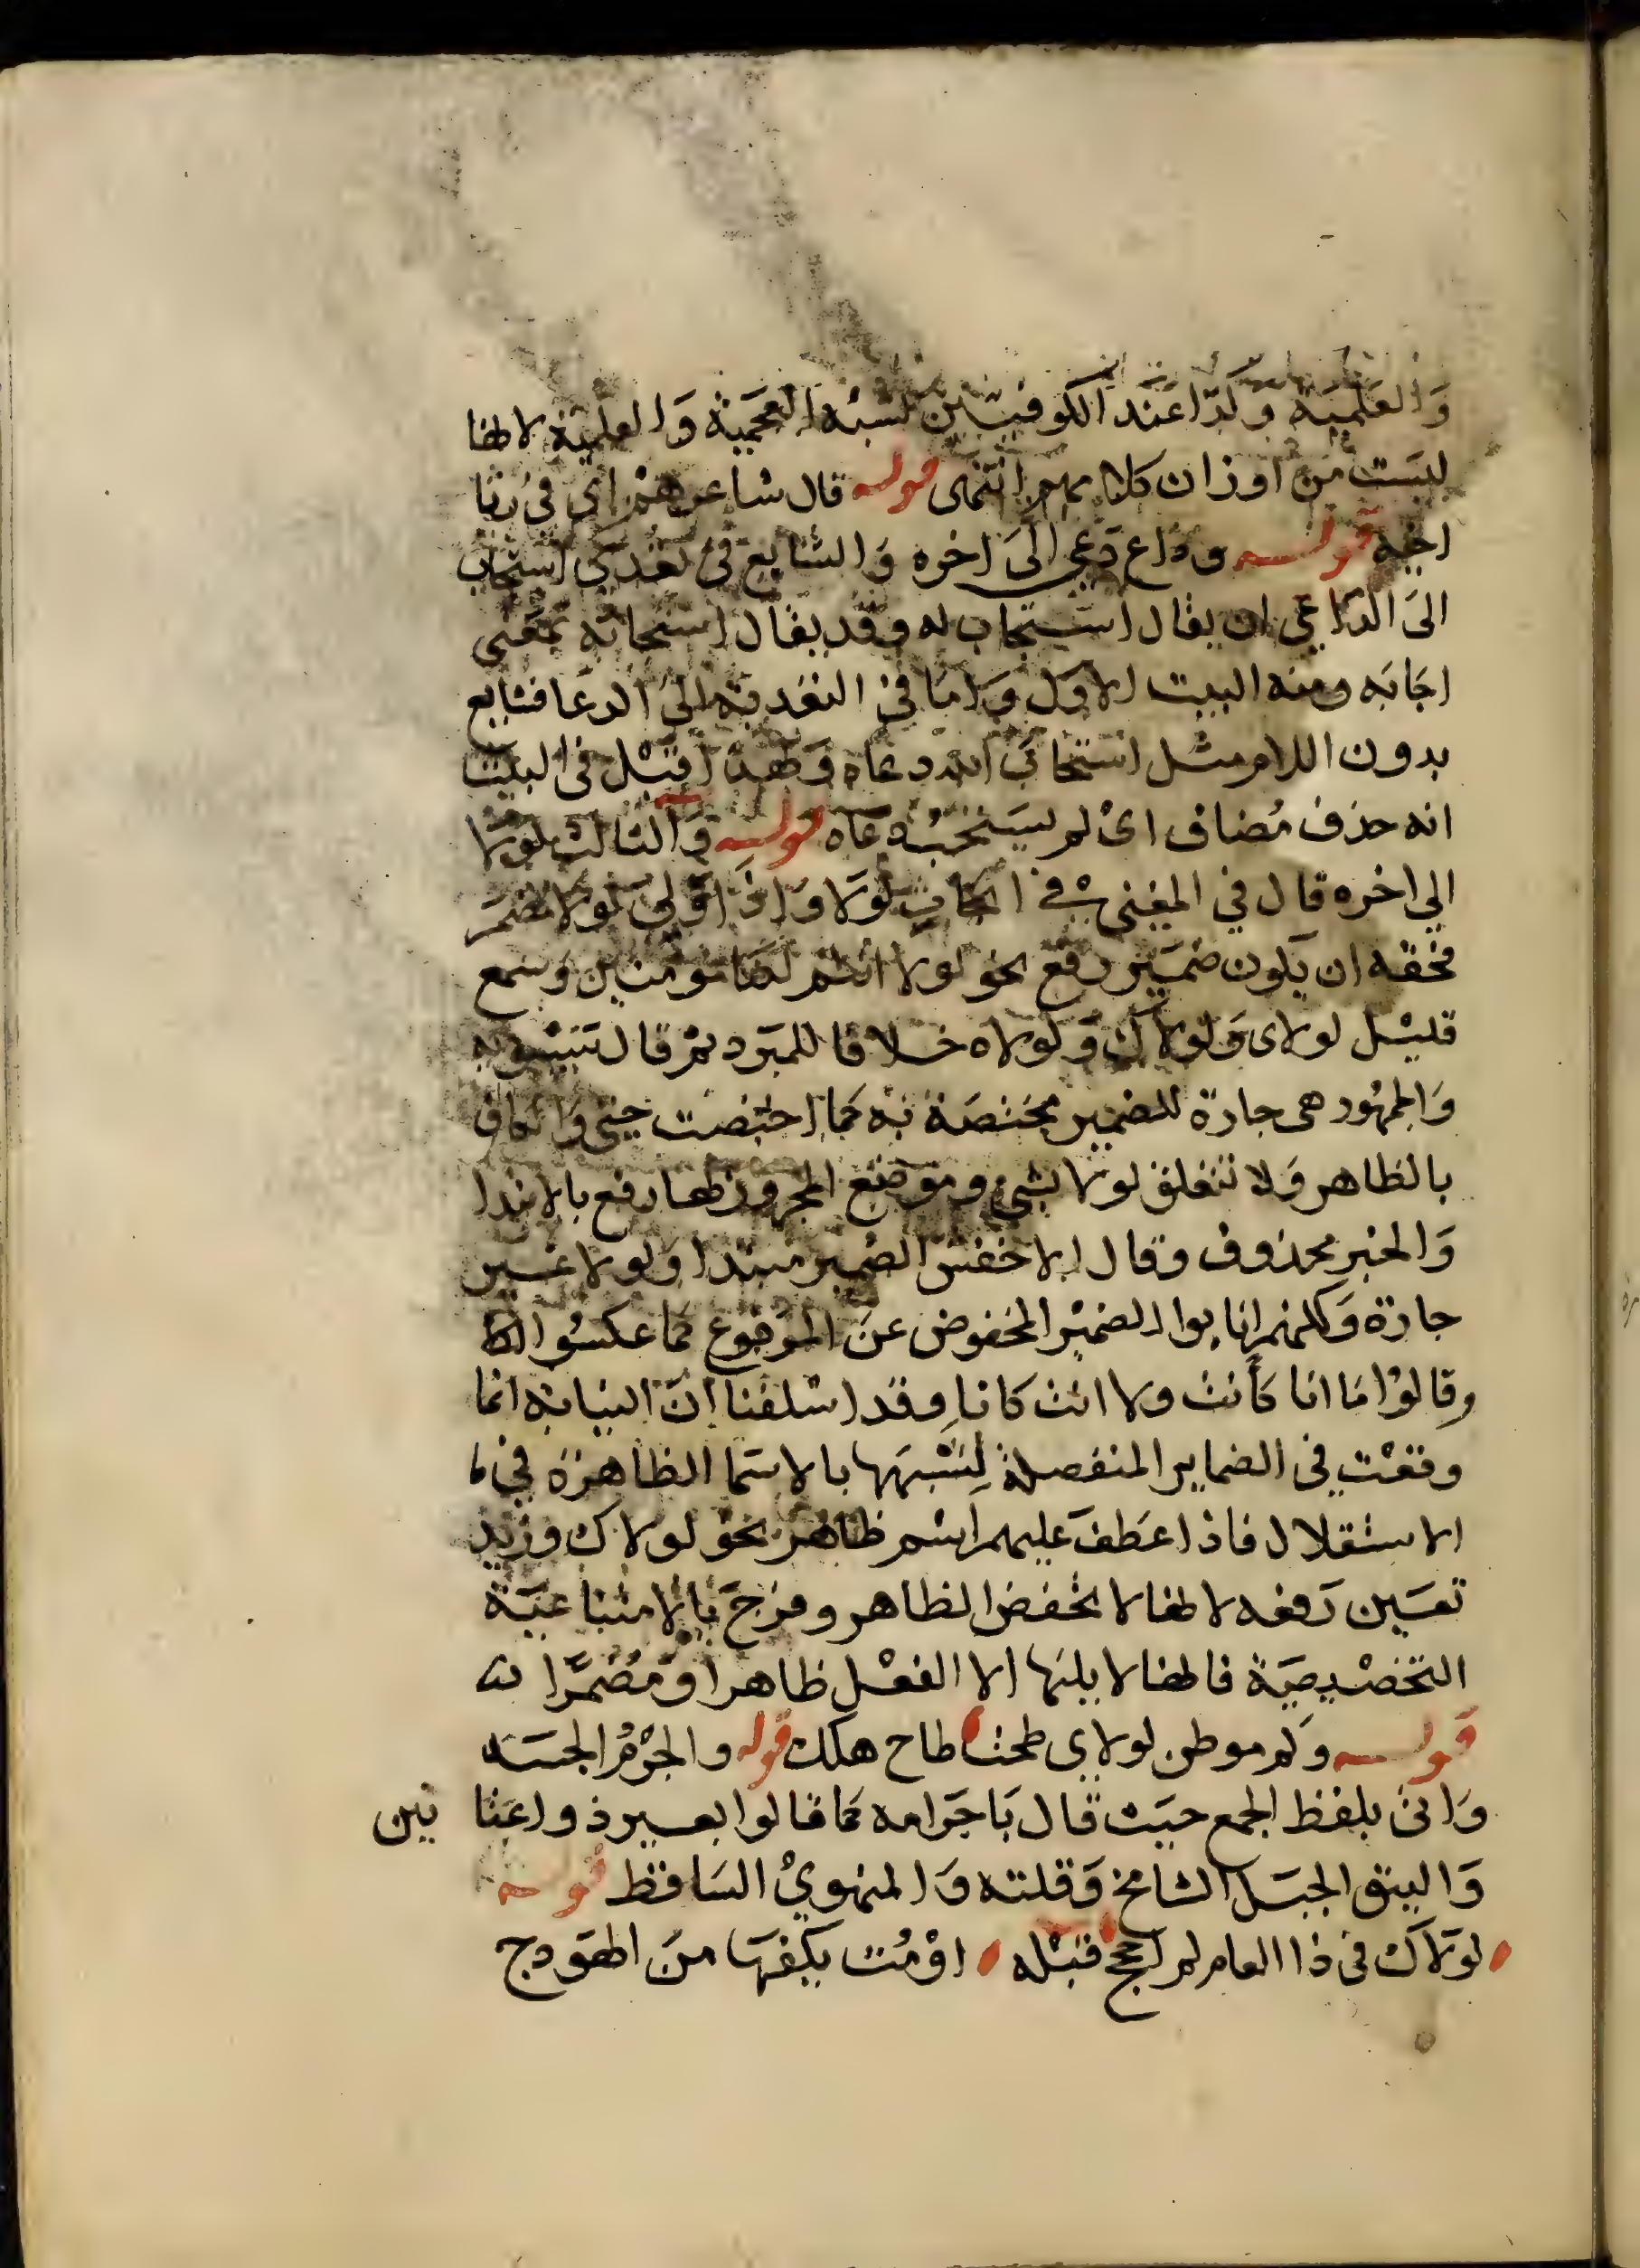 والعلمية وكذا عند الكوفيين لشبه العجمية والعلمية لانها
ليست من اوزان كلامهم انتهى قوله قال شاعرهم اى فى رثا
اخيه قوله وداع دعى الى اخره والشايع فى تعدى استجاب
الى الداعي ان يقال استجاب له وقد يقال استجابه بمعنى
اجابه ومنه البيت الاول واما في التعدية الى الدعا فشايع
بدون اللام مثل استجاب الله دعاه ولهذا قيل فى البيت
انه حذف مضاف اى لم يستجب دعاه قوله والثالث لولا
الي اخره قال في المغنى في لولا واذا ولي لولا مضمر
فحقه ان يكون ضمير رفع نحو لولا انتم لكنا مومنين وسمع
قليل لولاى ولولاك ولولاه خلافا للمبرد ثم قال سيبويه
والجمهور هى جارة للضمير مختصة به كما اختصت حتى والكاف
بالظاهر ولا تتعلق لولا بشي وموضع المجرور بها رفع بالابتدا
والخبر محذوف وقال الاخفش الضمير مبتدا ولولا غير
جارة ولكنهم انابوا الضمير المخفوض عن المرفوع كما عكسوا اذ
وقالوا ما انا كأنت ولا انت كانا وقد اسلفنا ان النيابه انما
وقعت في الضماير المنفصلة لشبهها بالاسما الظاهرة في
الاستقلال فاذا عطف عليهم اسم ظاهر نحو لولاك وزيد
تعين رفعه لانها لا تخفض الظاهر وخرج بالامتناعية
التخصيصية فانها لا يليها الا الفعل ظاهرا او مضمرا
قوله وكم موطن لولاى طحت طاح هلك قوله والجرم الجسد
واتى بلفظ الجمع حيث قال باجرامه كما قالوا بعير ذو اعثا نين
والنيق الجبل الشامخ وقلته والمنهوي الساقط قوله
لولاك فى ذا العام لم احجج قبله اومت بكفها من الهودج